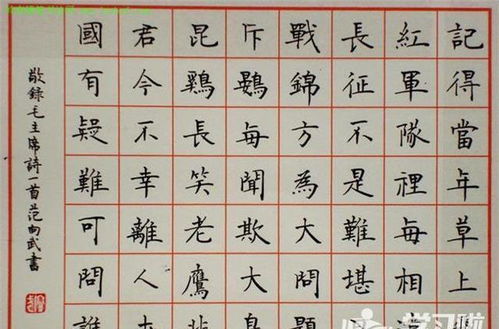 記得當年草上
紅軍隊裡每相
長征不是難堪
戰錦方為大問題
斥鷃每聞欺大
昆鷄長笑老鷹非
君今不幸離人
國有疑難可問誰
敬錄毛主席詩一首范向武書
学习啦